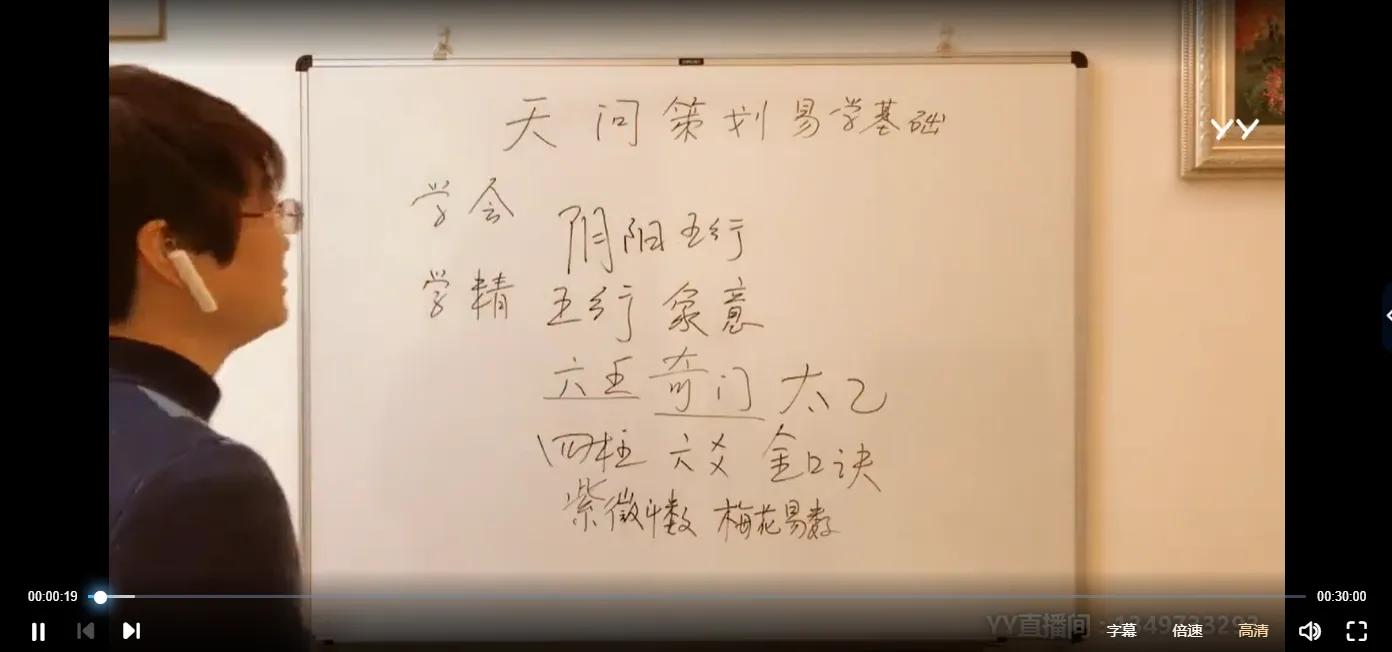 天问策划易学基础
学会
阴阳五行
学精
五行 象意
六壬 奇门 太乙
四柱 六爻 金口诀
紫微斗数 梅花易数
YY
00:00:19
00:30:00
YY直播间：
字幕 倍速 高清